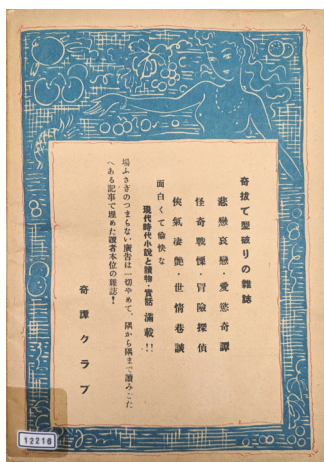 奇拔で型破りの雜誌
悲戀哀戀・愛慾奇譚
怪奇戰慄・冒險探偵
俠氣凄艶・世情巷談
面白くて愉快な
現代時代小說と讀物・實話 滿載!!
場ふさぎのつまらない廣告は一切やめて、隅から隅まで讀みごた
へある記事で埋めた讀者本位の雜誌!
奇譚クラブ
12216